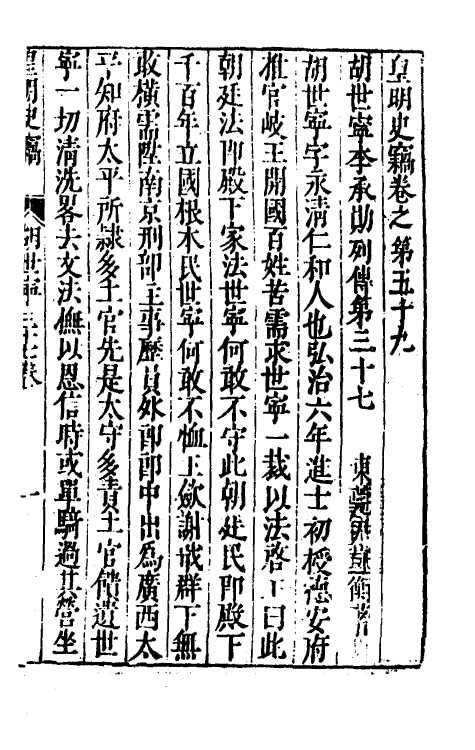 皇明史竊卷之第五十九
胡世寧李承勛列傳第三十七 東莞尹守衡著
胡世寧字永清仁和人也弘治六年進士初授德安府
推官岐王開國百姓苦需求世寧一裁以法啓王曰此
朝廷法即殿下家法世寧何敢不守此朝廷民即殿下
千百年立國根本民世寧何敢不恤王歛謝戒群下無
敢橫需陞南京刑部主事歷員外郎郎中出為廣西太
平知府太平所隸多土官先是太守多責土官餽遺世
寧一切清洗畧去文法憮以恩信時或單騎過其營坐
皇明史竊 胡世寧三十七卷 一